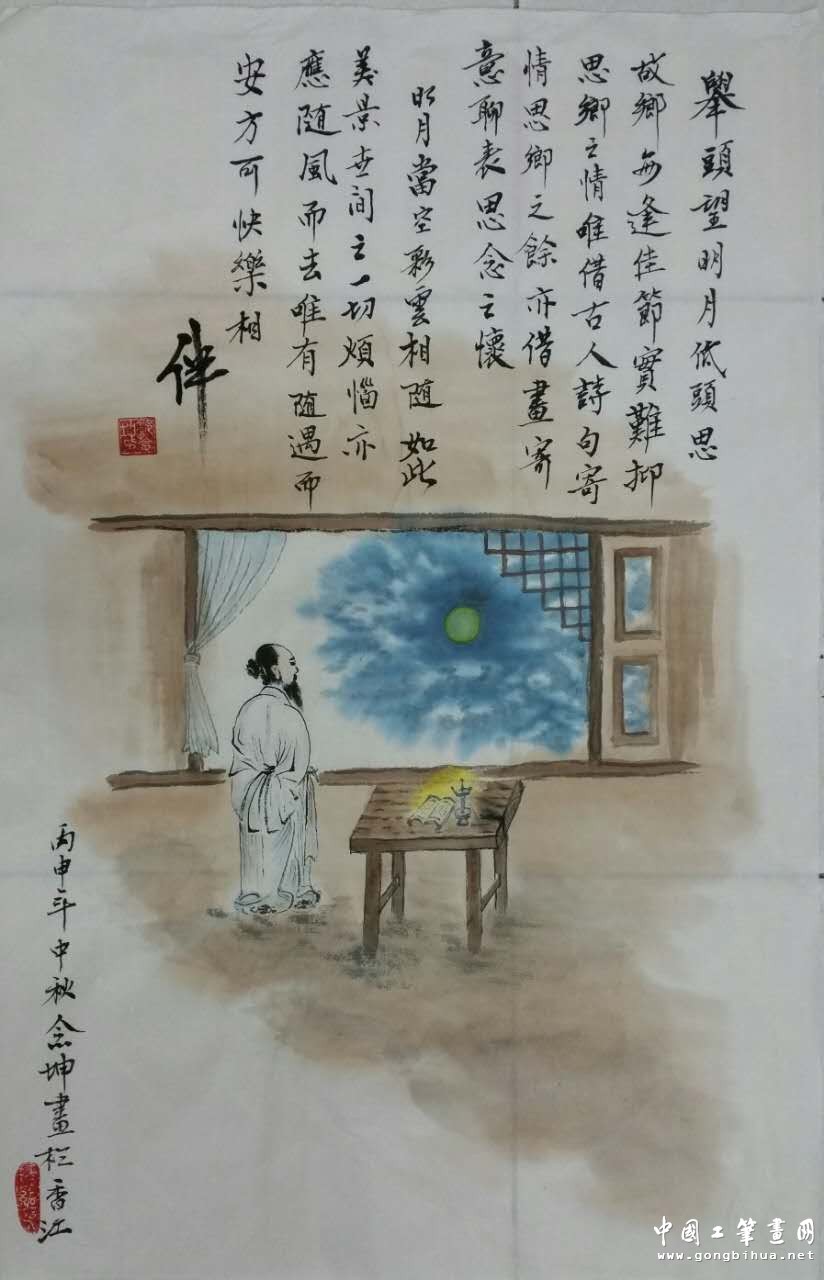 舉頭望明月低頭思
故鄉每逢佳節實難抑
思鄉之情唯借古人詩句寄
情思鄉之餘亦借畫寄
意聊表思念之懷
明月當空彩雲相隨如此
美景世间之一切煩惱亦
應随風而去唯有随遇而
安方可快樂相
伴
丙申年中秋念坤畫於香江
中國工筆畫网
www.gongbihua.net